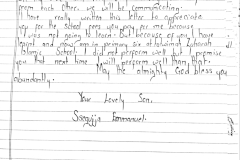 from each other, we will be communicating.
I have really written this letter to appreciate
you for the school fees you pay for me because
I was not going to learn. But because of you I have
learnt and now am in primary six at Zaharah
Islamic School. I did not perform well but I promise
you that next time I will perform well than that.
May the almighty God bless you
abundantly.
Your Lovely Son,
Ssegujja Emmanuel.